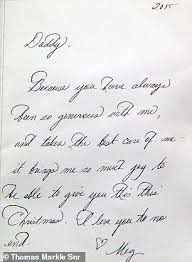 2015
Daddy.
Because you have always
been so generous with me,
and taken the best care of me
it brings me so much joy to
be able to give you this this
Christmas. I love you to no
end.
♡ Meg
© Thomas Markle Snr